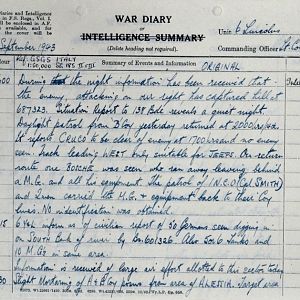 Variaries and Intelligence
in F.S. Regs., Vol. I
will be enclosed in A.F.
WAR DIARY
INTELLIGENCE SUMMARY
(Delete heading not required).
Unit 6 Lincolns
Commanding Officer Lt. Col
September 1943
Ref. GSGS ITALY
1:50,000
ORIGINAL
Summary of Events and Information
hour
During the night information has been received that
the enemy, attacking on our right has captured hill at
687323. Situation Report to 138 Bde reveals a quiet night.
Daylight patrol from B Coy yesterday returned at 2000 hrs
It reports CRUCO to be clear of enemy at 1700 hrs and no enemy
seen. Track leading WEST only suitable for JEEPS. On return
route one BOCHE was seen who ran away leaving behind
a M.G. and all his equipment. The patrol of 1 N.C.O. (Cpl SMITH)
and 2 men carried the M.G. & equipment back to their Coy
lines. No identification was obtained.
inform us of civilian report of 30 Germans seen digging in
on SOUTH bank of river by Bn. 601326. Also 5 or 6 tanks and
10 M.Gs in same area.
Information is received of large air effort allotted to Air sector today
Slight Mortaring of A & B Coy posns from area of ALEMIA. Target area